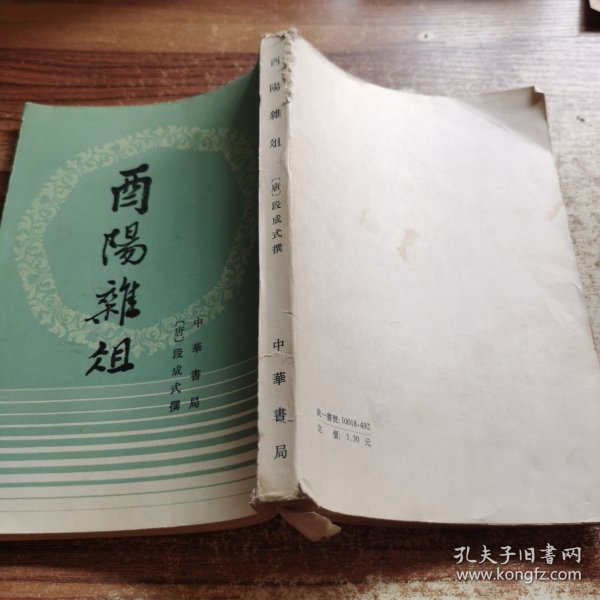 酉陽雜俎
〔唐〕段成式撰
中華書局
酉陽雜俎
〔唐〕段成式撰
中華書局
統一書號:10018·492
定價:1.30元
孔夫子旧书网
www.kongfz.com